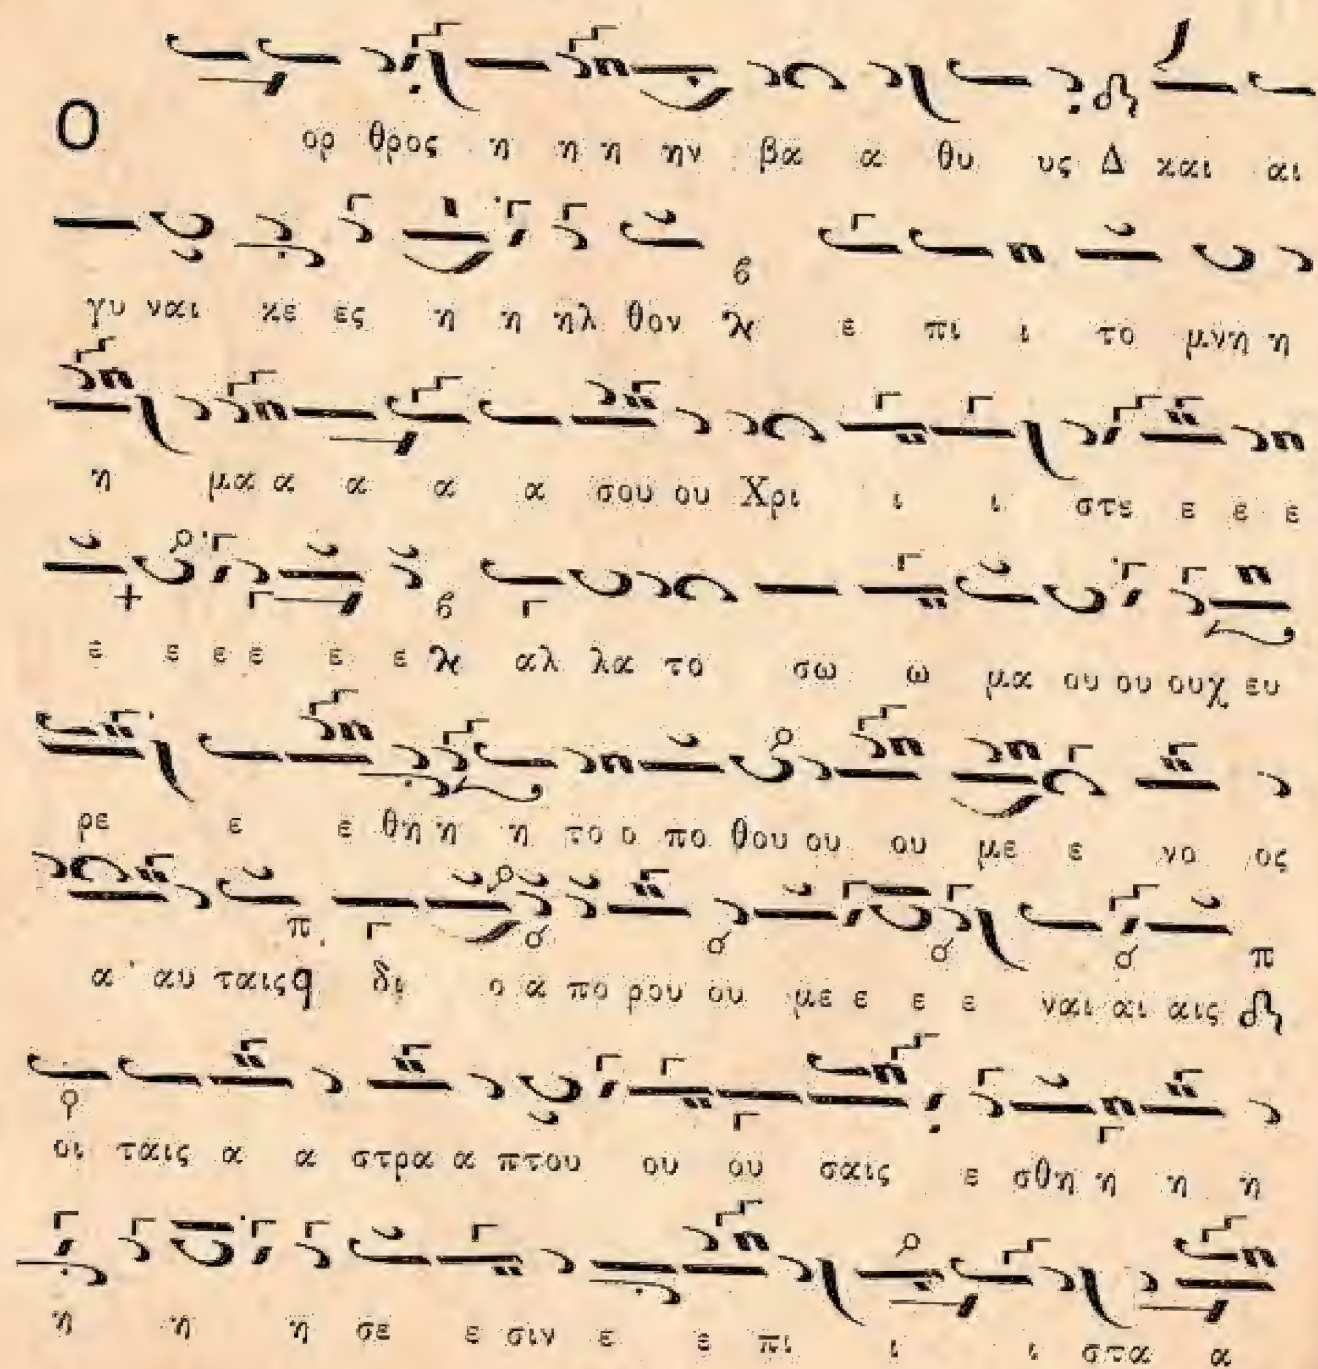 Ο ορ θρος η η η ην βα α θυ υς Δ και αι
γυ ναι κε ες η η ηλ θον ϗ ε πι ι το μνη η
η μα α α α α σου ου Χρι ι ι στε ε ε ε
ε ε ε ε ε ε ϗ αλ λα το σω ω μα ου ου ουχ ευ
ρε ε ε θη η η το ο πο θου ου ου με ε νο ος
α αυ ταις q δι ο α πο ρου ου με ε ε ε ναι αι αις
οι ταις α α στρα α πτου ου ου σαις ε σθη η η η
η η η σε ε σιν ε ε πι ι ι στα α